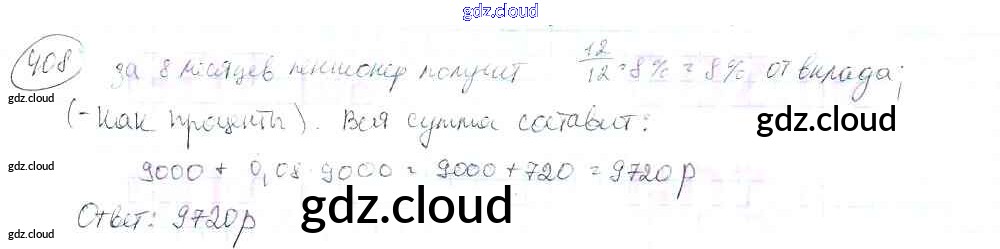 gdz.cloud
408 за 8 месяцев пенсионер получит 12/12 · 8% = 8% от вклада;
gdz.cloud
(-как проценты). Вся сумма составит:
gdz.cloud
gdz.cloud 9000 + 0,08 · 9000 = 9000 + 720 = 9720 р
Ответ: 9720р
gdz.cloud
gdz.cloud